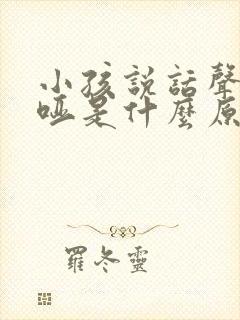 小孩說話聲
啞是什麼原
羅冬靈